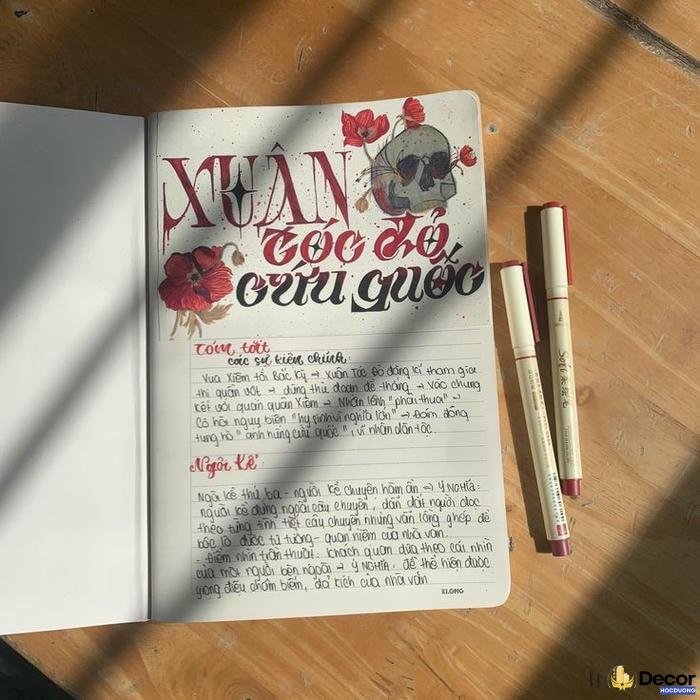 XUÂN
tóc đỏ
cứu quốc
Tóm tắt
các sự kiện chính:
Vua Xiêm tới Bắc Kỳ → Xuân Tóc Đỏ đăng kí tham gia
thi quần vợt → dùng thủ đoạn để thắng → Vác chung
kết với quán quân Xiêm → Nhận lệnh "phải thua" →
Cô hồi nguỵ biện "hy sinh vì nghĩa lớn" → Đám đông
tung hô "anh hùng cứu quốc", vĩ nhân dân tộc.
Ngôi kể:
Ngôi kể thứ ba - người kể chuyện hàm ẩn → Ý NGHĨA:
người kể đứng ngoài câu chuyện, dẫn dắt người đọc
theo từng tình tiết câu chuyện nhưng vẫn lồng ghép để
bộc lộ được tư tưởng - quan niệm của nhà văn.
- Điểm nhìn trần thuật: khách quan dựa theo cái nhìn
của một người bên ngoài → Ý NGHĨA: để thể hiện được
giọng điệu châm biếm, đả kích của nhà văn
KLONG
Decor
HOCDUONG